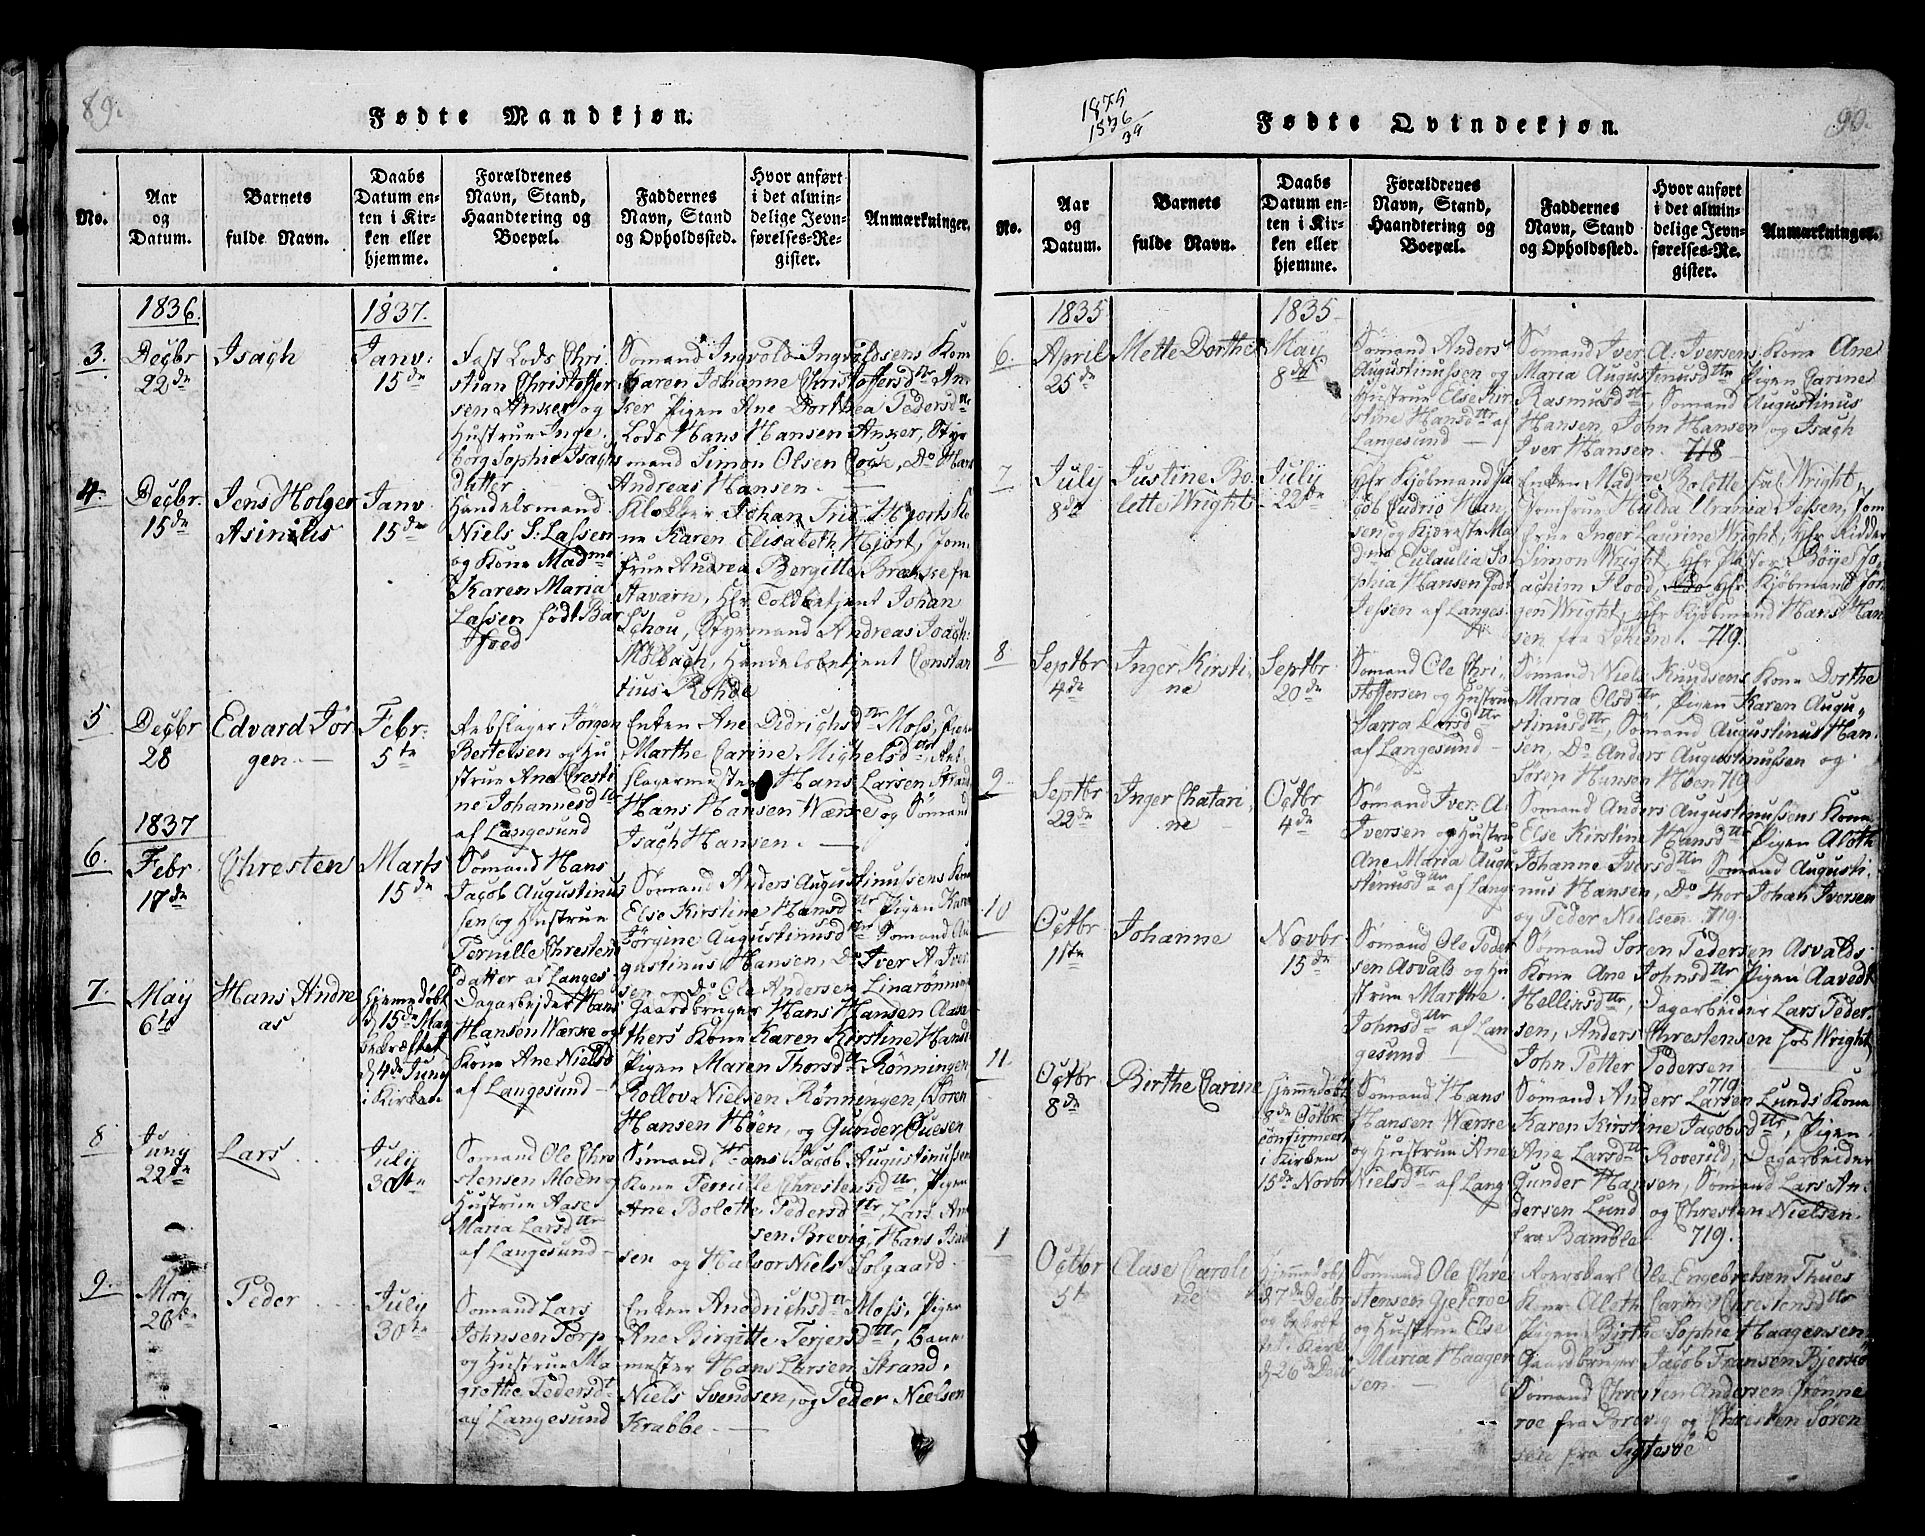 89.
Fødte Mandkjøn.
No.
Aar og Datum.
Barnets fulde Navn.
Daabs Datum enten i Kirken eller hjemme.
Forældrenes Navn, Stand, Haandtering og Boepæl.
Faddernes Navn, Stand og Opholdssted.
Hvor anført i det almindelige Jevnførelses-Register.
Anmærkninger.
1836.
1837.
3.
Decbr
22de
Isach
Janv:
15de
Fast Lods Chri-
stian Christoffer
sen Anker og
Hustrue Inge-
borg Sophie Isachs
datter
Sømand Ingvold Ingvoldsens Kone
Karen Johanne Christoffersdtr An-
ker Pigen Ane Dorthea Pedersdtr
Lods Hans Hansen Anker, Styr
mand Simon Olsen Cock, Do Hans
Andreas Hansen.
4.
Decbr.
15de
Jens Holger
Asinius
Janv
15de
Handelsmand
Niels S. Lassen
og Kone Madme
Karen Maria
Lassen født Bar
foed
Klokker Johan Fred. Hjorts Ko
ne Karen Elisabeth Hjort, Jom-
frue Andrea Bergitte Brekke fra
Staværn, Hr Toldbetjent Johan
Schou, Styrmand Andreas Isach
Mølbach, Handelsbetjent Constan
tius Rohde
5
Decbr
28
Edvard Jør
gen.
Febr.
5te
Rebslager Jørgen
Bertelsen og Hu
strue Ane Chresti
ne Johannesdtr
af Langesund
Enken Ane Didrichsdtr Moss, Pigen
Marthe Carine Michelsdtr Reb
slagermester Hans Larsen Strand
Hans Hansen Werske og Sømand
Isach Hansen.
1837
6.
Febr
17de
Chresten
Marts
15de
Sømand Hans
Jacob Augustinus
sen og Hustrue
Pernille Chrestens
datter af Langes
Sømand Anders Augustinussens Kone
Else Kirstine Hansdtr Pigen Karen
Jørgine Augustinusdtr Sømand Au
gustinus Hansen, Do Iver A. Iver
sen og Do Ole Andersen Linarønnin
7.
May
6te
Hans Andre
as
Hjemmedøbt
d 15de May
bekræftet
d 4de Juny
i Kirken
Dagarbejder Hans
Hansen Werske og
Kone Ane Nielsd
af Langesund
Gaardbruger Hans Hansen Aase
thers Kone Karen Kirstine Hansd
Pigen Maren Thorsdtr Rønningen
Rollov Nielsen Rønningen, Søren
Hansen Høen, og Gunder Ouesen
8
Juny
22de
Lars
July
30te
Sømand Ole Chre
stensen Moen og
Hustrue Aase
Maria Larsdtr
af Langesund
Sømand Hans Jacob Augustinussen
Kone Pernille Chrestensdtr, Pigen
Ane Bolette Pedersdtr, Lars An
sen Brevig, Hans Isach
sen og Halvor Niels Solgaard.
9.
May
26de
Peder
July
30te
Sømand Lars
Johnsen Torp
og Hustrue Ma
grethe Pedersdtr
af Langesund
Enken Anedrichsdtr Moss, Pigen
Ane Birgitte Terjersdtr, Bane
mester Hans Larsen Strand,
Niels Svendsen, og Peder Nielsen
Krabbe
1875
1836
39
Fødte Qvindekjøn.
90.
No.
Aar og Datum.
Barnets fulde Navn.
Daabs Datum enten i Kirken eller hjemme.
Forældrenes Navn, Stand, Haandtering og Boepæl.
Faddernes Navn, Stand og Opholdssted.
Hvor anført i det almindelige Jevnførelses-Register.
Anmærkninger.
1835
1835.
6.
April
25de
Mette Dorthe
May
8de
Sømand Anders
Augustinussen og
Hustrue Else Kir
stine Hansdtr af
Langesund
Sømand Iver A. Iversens Kone Ane
Maria Augustinusdtr Pigen Carine
Rasmusdtr, Sømand Augustinus
Hansen, John Hansen og Isach
Iver Hansen. 718
7
July
8de
Justine Bo-
lette Wright
July
22de
Hr Kjøbmand Ja
cob Cudrio Han
sen og Kjæreste Ma
dme Eulaulia So
phia Hansen født
Jessen af Langes
Enken Madme Bolette sal Wright,
Jomfrue Hulda Urania Jessen, Jom
frue Inger Laurine Wright, Hr Ridder
Simon Wright, Hr Pastor Bøye Jo
achim Flood, Hr Kjøbmand Jør
gen Wright, Hr Kjøbmand Hans Han
sen fra 719.
8
Septbr
4de
Inger Kirsti-
ne
Septbr
20de
Sømand Ole Chri-
stoffersen og Hustrue
Sarra Larsdtr
af Langesund
Sømand Niels Knudsens Kone Dorthe
Maria Olsdtr, Pigen Karen Augu-
stinusdtr Sømand Augustinus Han-
sen, Do Anders Augustinussen og
Søren Hansen Høen 719
9
Septbr
22de
Inger Chatari
ne
Octbr
4de
Sømand Iver A.
Iversen og Hustrue
Ane Maria Augu
stinusdtr af Lang
Sømand Anders Augustinussens Kone
Else Kirstine Hansdtr Pigen Aleth
Johanne Iversdtr Sømand Augusti-
nus Hansen, Do Thor Johan Iversen
og Peder Nielsen 719.
10
Octbr
11te
Johanne
Novbr
15de
Sømand Ole Peder
sen Asvald og Hu
strue Marthe
Johnsdtr af Lan
gesund
Sømand Søren Pedersen Asvalds
Kone Ane Johnsdtr Pigen Aavedt
Helliksdtr, Dagarbeider Lars Peder-
sen, Anders Chrestensen hos Wright
John Petter Pedersen
719
11.
Octbr
8de
Birthe Carine
Hjemmedøbt
9de Octbr
confirmeert
i Kirken
15de Novbr
Sømand Hans
Hansen Werske
og Hustrue Ane
Nielsdtr af Lang
Sømand Anders Larsen Lunds Kone
Karen Kirstine Jacobsdtr, Pigen
Ane Larsdtr Roverud, Dagarbeider
Gunder Hansen, Sømand Lars An-
dersen Lund og Chresten Nielsen
fra Bamble. 719.
1
Octbr
5te
Olase Caroli
ne
Hjemmedøbt
d 7de Decbr
og bekræf
tet i Kirk
d 26de Decb
Sømand Ole Chre
stensen Gjeteroe
og Hustrue Else
Maria Haagen
sen
Roerskarl Ole Engebretsen Thues
Kone Aleth Carine Chrestensdtr
Pigen Birthe Sophie Haagensen
Gaardbruger Jacob Fransen Bjerkø
Sømand Chresten Andersen Grønne
roe fra Brevig og Chresten Søren
sen fra Sigtesøe